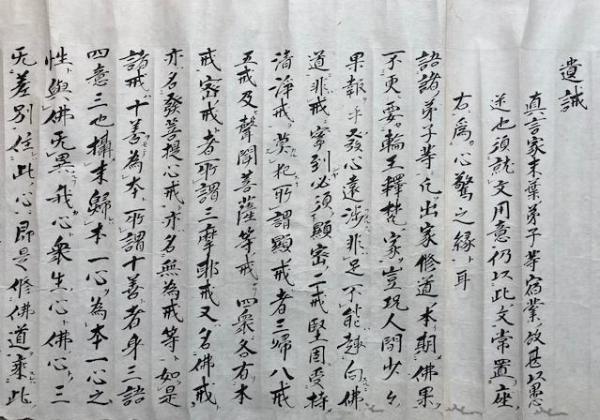 遺誡
真言家末葉弟子等宿業故甚以愚
迷也須就文用意仍以此文常置座
右為心驚之縁耳
語諸弟子等凡出家修道本期佛果
不更要輪王釋梵家豈况人間少々
果報乎發心遠渉非足不能趣向佛
道非戒寧到必須顯密二戒堅固受持
清浄戒莫犯所謂顯戒者三歸八戒
五戒及聲聞菩薩等戒四衆各有本
戒密戒者所謂三摩耶戒又名佛戒
亦名發菩提心戒亦名無為戒等如是
諸戒十善為本所謂十善者身三語
四意三也攝末歸本一心為本一心之
性與佛无異我心衆生心佛心三
无差別住此心即是修佛道乘此